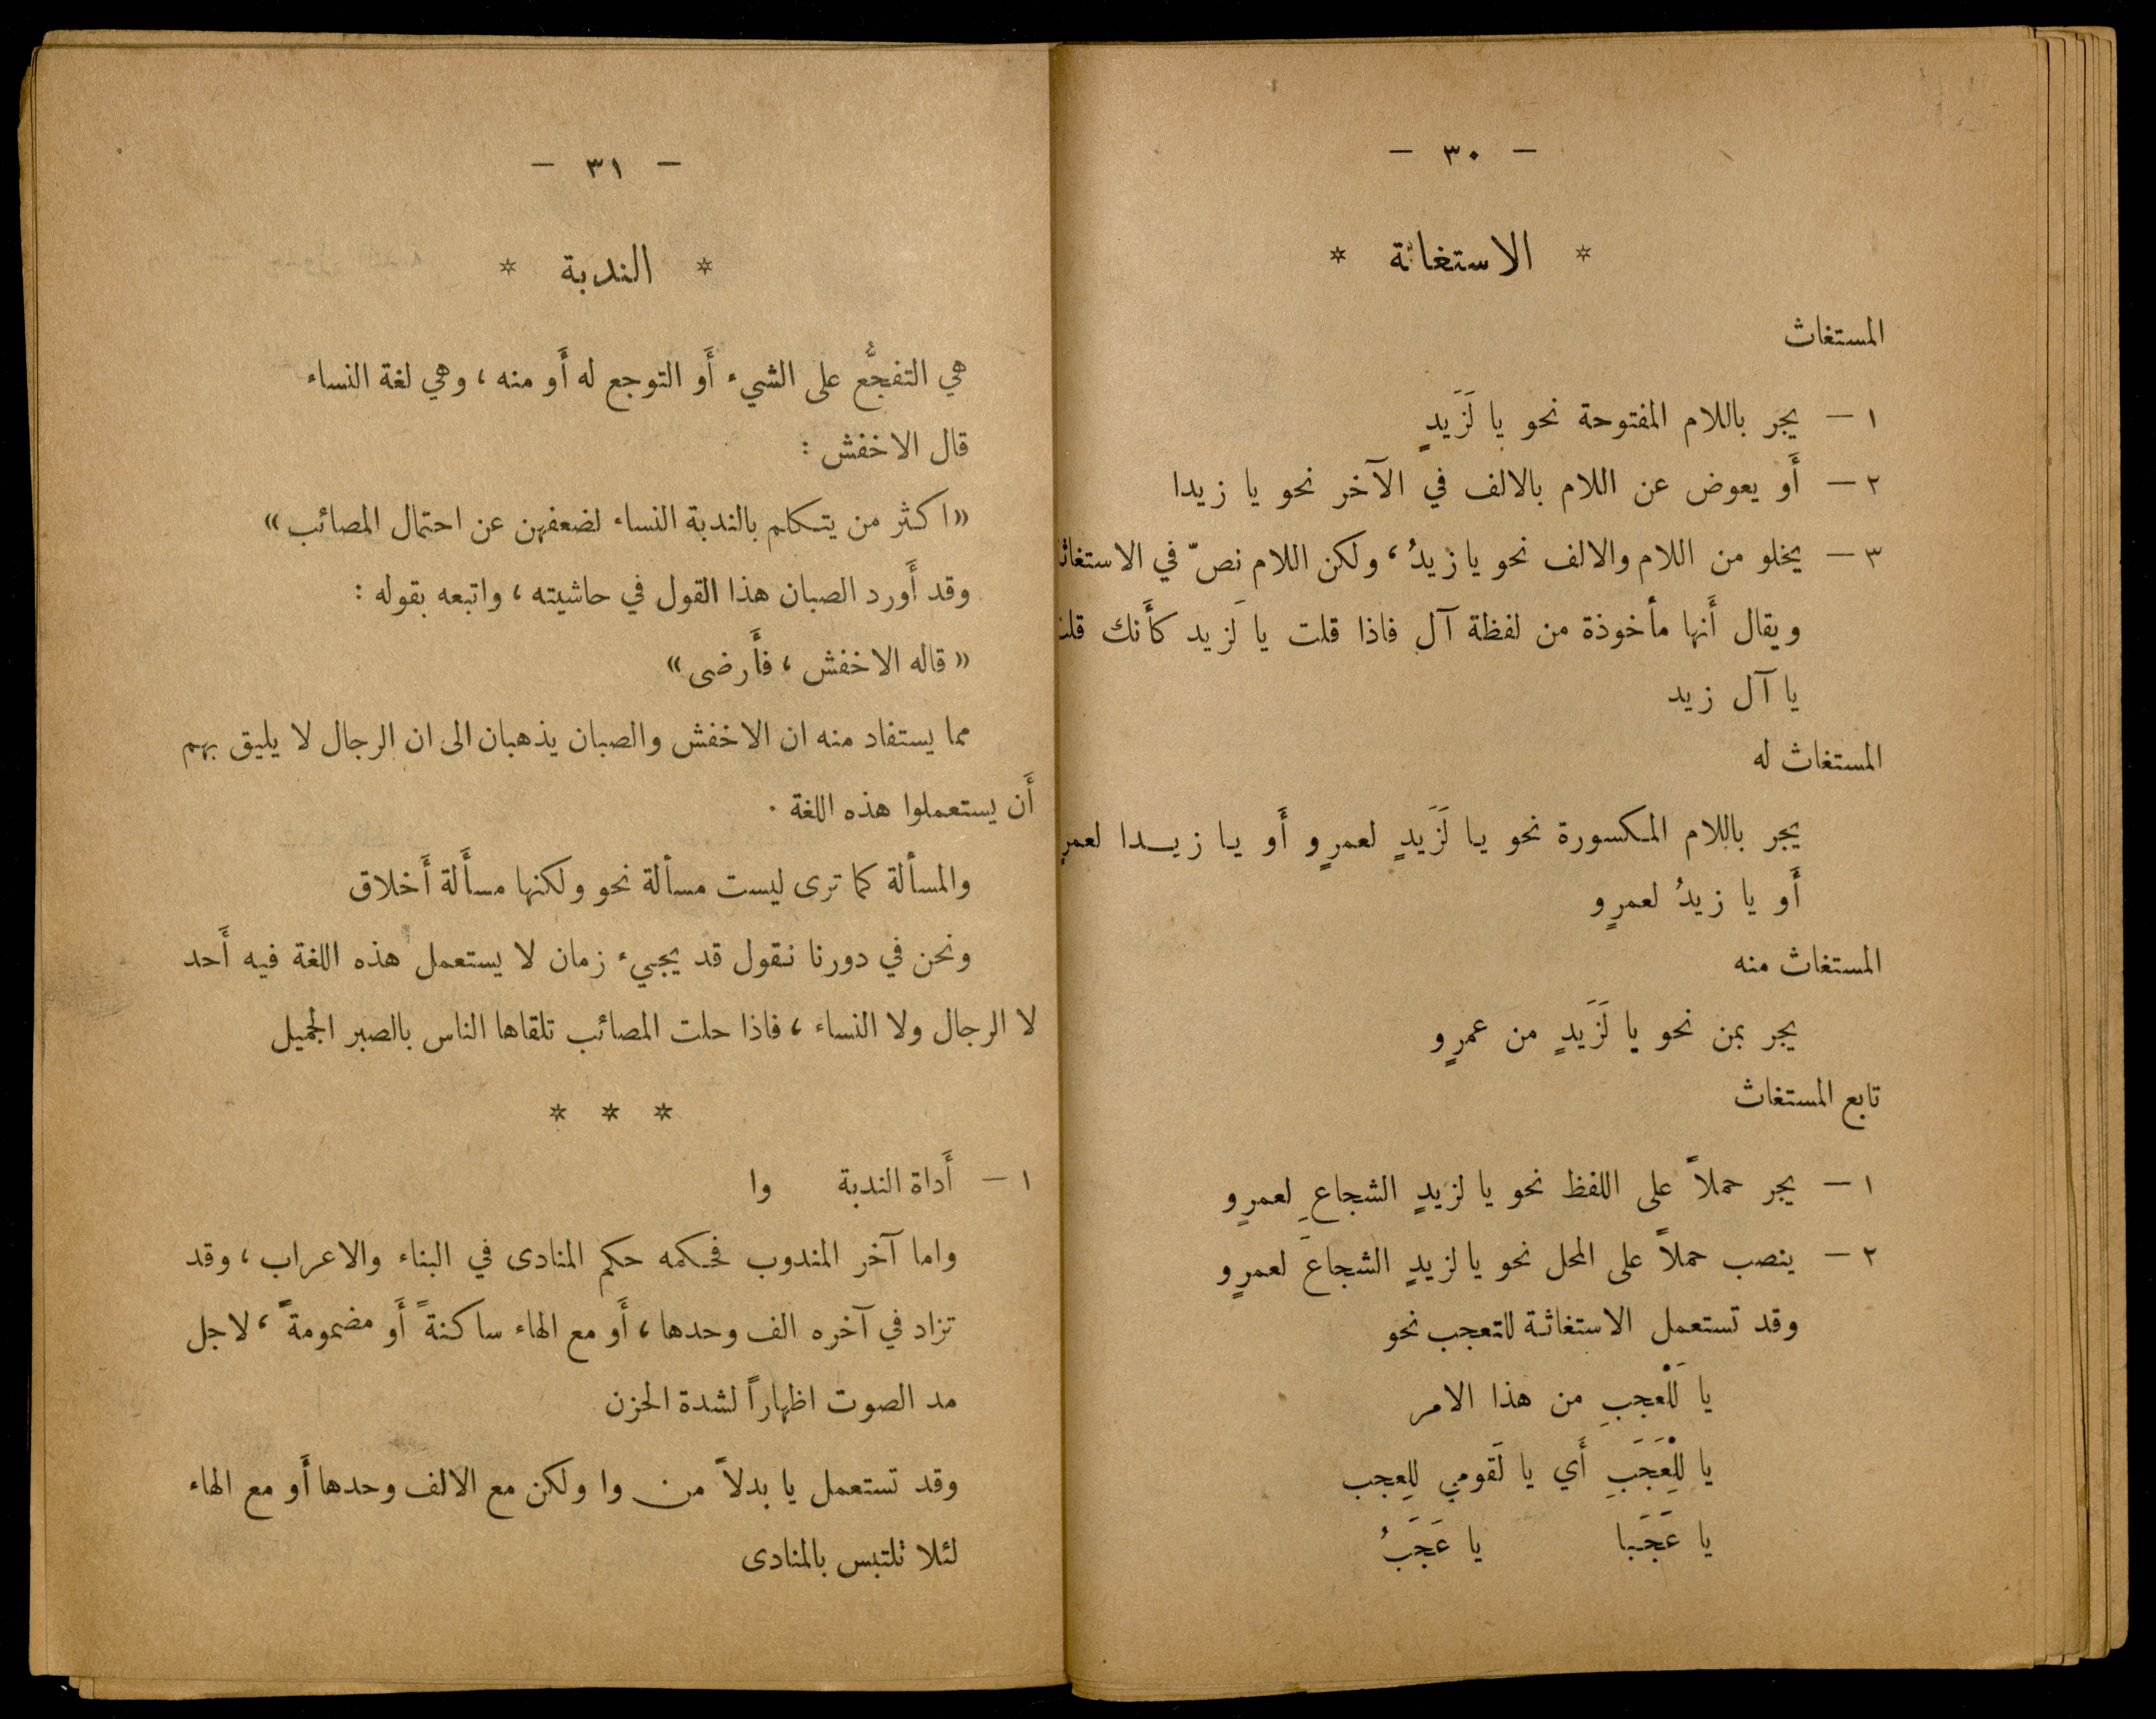 — ٣٠ —
* الاستغاثة *
المستغاث
١ — يجر باللام المفتوحة نحو يا لَزَيدٍ
٢ — أَو يعوض عن اللام بالالف في الآخر نحو يا زيدا
٣ — يخلو من اللام والالف نحو يا زيدُ، ولكن اللام نصّ في
ويقال أَنها مأخوذة من لفظة آل فاذا قلت يا لَزيد كأَنك
يا آل زيد
المستغاث له
يجر باللام المكسورة نحو يا لَزَيدٍ لعمرٍو أَو يا زيدا
أَو يا زيدُ لعمرٍو
المستغاث منه
يجر بمن نحو يا لَزَيدٍ من عمرٍو
تابع المستغاث
١ — يجر حملاً على اللفظ نحو يا لزيدٍ الشجاعِ لعمرٍو
٢ — ينصب حملاً على المحل نحو يا لزيدٍ الشجاعَ لعمرٍو
وقد تستعمل الاستغاثة للتعجب نحو
يا لَلْعجبِ من هذا الامر
يا لِلْعَجَبِ أَي يا لَقومي لِلعجب
يا عَجَبا يا عَجَبُ
— ٣١ —
* الندبة *
هي التفجُّع على الشيء أَو التوجع له أَو منه، وهي لغة النساء
قال الاخفش :
«اكثر من يتكلم بالندبة النساء لضعفهن عن احتمال المصائب»
وقد أَورد الصبان هذا القول في حاشيته، واتبعه بقوله :
«قاله الاخفش، فأَرضى»
مما يستفاد منه ان الاخفش والصبان يذهبان الى ان الرجال لا يليق بهم
أَن يستعملوا هذه اللغة .
والمسألة كما ترى ليست مسألة نحو ولكنها مسأَلة أَخلاق
ونحن في دورنا نقول قد يجيء زمان لا يستعمل هذه اللغة فيه أَحد
لا الرجال ولا النساء، فاذا حلت المصائب تلقاها الناس بالصبر الجميل
* * *
١ — أَداة الندبة وا
واما آخر المندوب فحكمه حكم المنادى في البناء والاعراب، وقد
تزاد في آخره الف وحدها، أَو مع الهاء ساكنةً أَو مضمومةً، لاجل
مد الصوت اظهاراً لشدة الحزن
وقد تستعمل يا بدلاً من وا ولكن مع الالف وحدها أَو مع الهاء
لئلا تلتبس بالمنادى